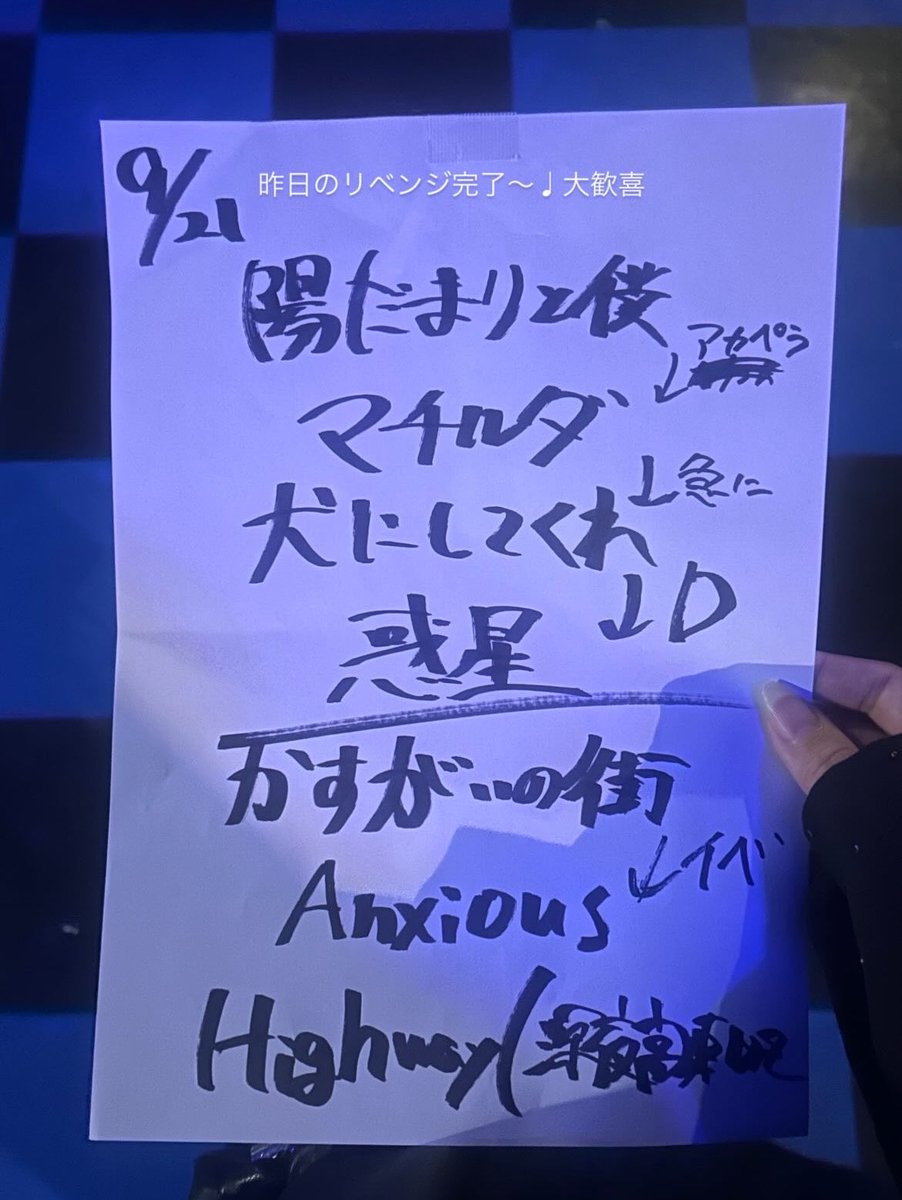 9/21
昨日のリベンジ完了〜♩大歓喜
陽だまりと僕
↓アカペラ
マチルダ
↓急に
犬にしてくれ
↓D
惑星
かすがいの街
↓イベ
Anxious
Highway(